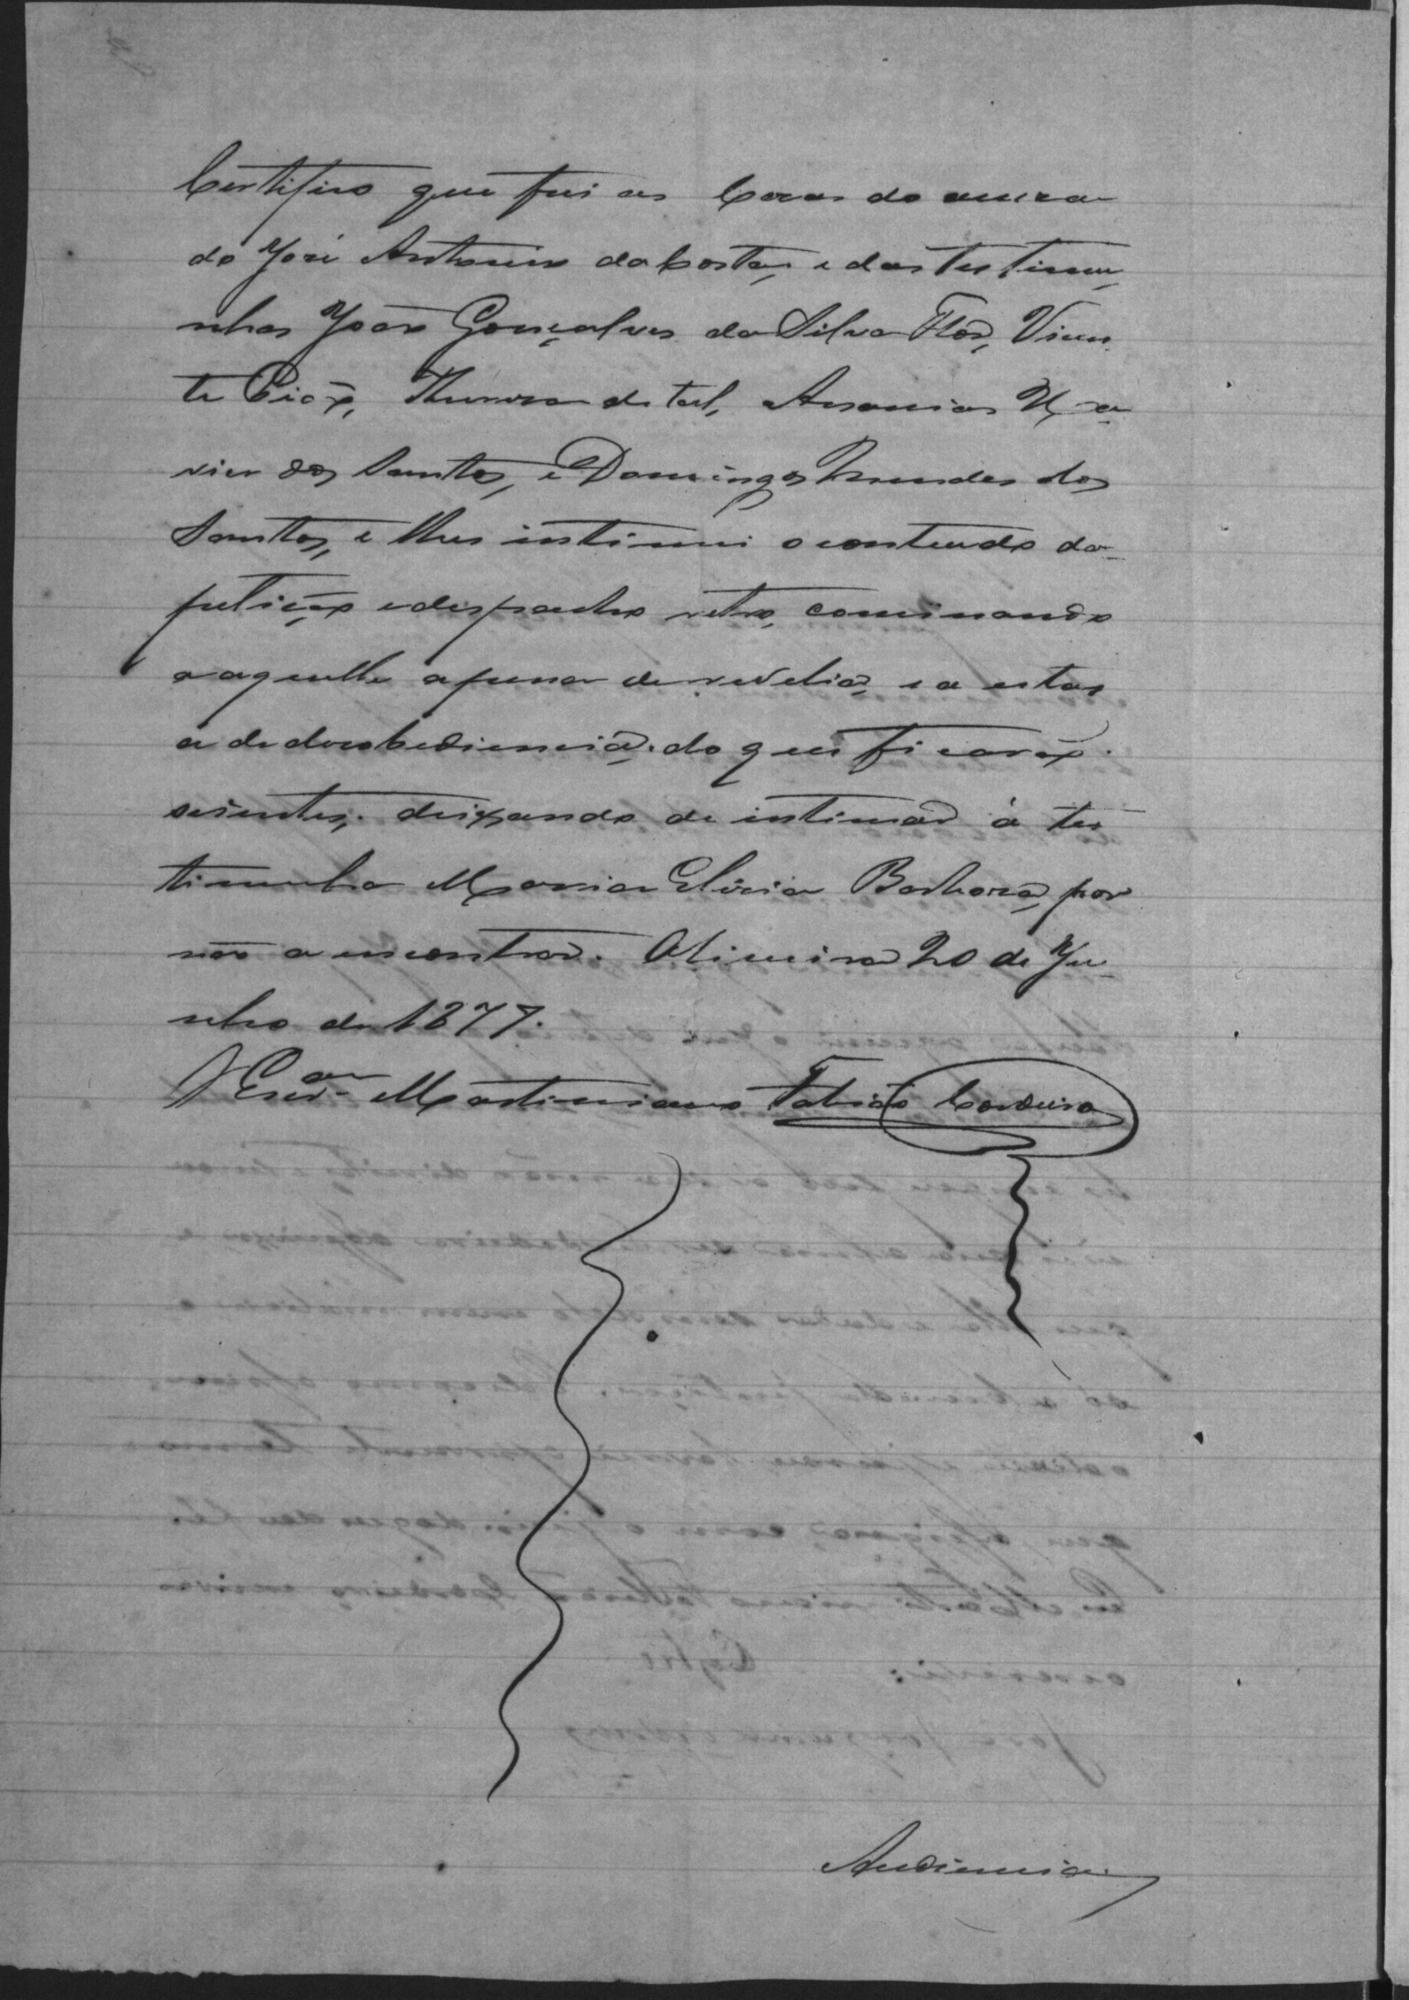 Certifico que fui as casas do accusa-
do José Antonio da Costa, e das testimu-
nhas João Gonçalves da Silva Flôr, Vicen-
te Pião, de tal, Ananias Xa-
vier dos Santos, e Domingos Mendes dos
Santos, e lhes intimei o conteudo da
petição e despacho retro, cominando
a aquelle a pena de revelia, e a estas
a de desobediencia, do que ficarão
scientes, deixando de intimar á tes-
timunha Maria Barbosa, por
não a encontrar. 20 de Ju-
nho de 1877.
O Escr.am Martiniano Fabião Cordeiro
Audiencia